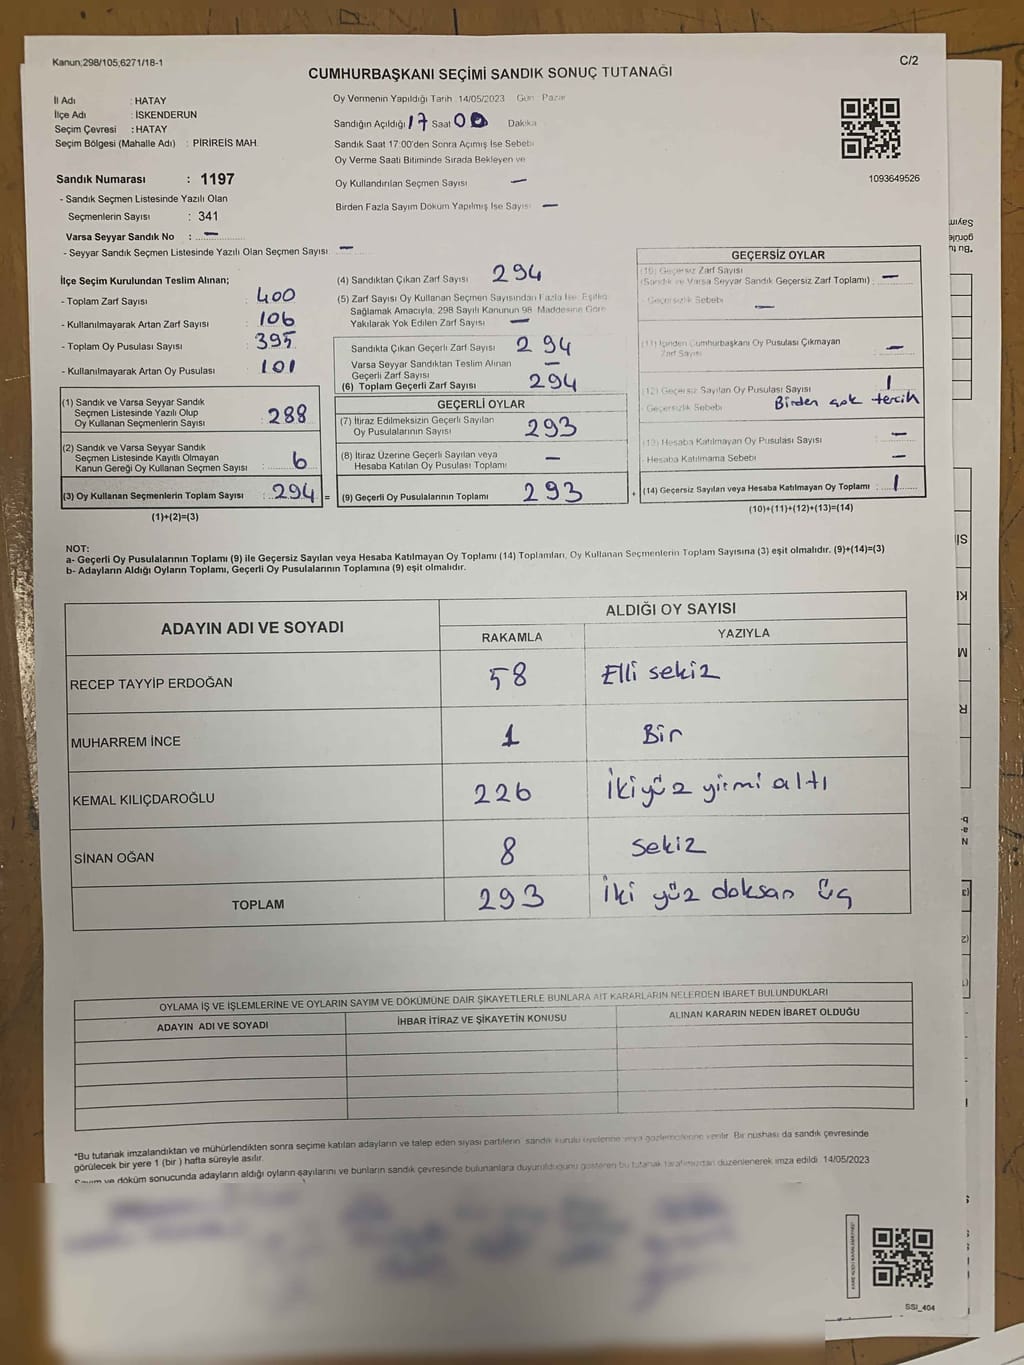 Kanun;298/105;6271/18-1
C/2
CUMHURBAŞKANI SEÇİMİ SANDIK SONUÇ TUTANAĞI
İl Adı : HATAY
İlçe Adı : İSKENDERUN
Seçim Çevresi : HATAY
Seçim Bölgesi (Mahalle Adı) : PİRİREİS MAH.
Oy Vermenin Yapıldığı Tarih 14/05/2023 Gün Pazar
Sandığın Açıldığı 17 Saat 00 Dakika
Sandık Saat 17:00'den Sonra Açımış İse Sebebi
Oy Verme Saati Bitiminde Sırada Bekleyen ve
Oy Kullandırılan Seçmen Sayısı —
Birden Fazla Sayım Döküm Yapılmış İse Sayısı —
1093649526
Sandık Numarası : 1197
- Sandık Seçmen Listesinde Yazılı Olan
Seçmenlerin Sayısı : 341
Varsa Seyyar Sandık No : —
- Seyyar Sandık Seçmen Listesinde Yazılı Olan Seçmen Sayısı —
İlçe Seçim Kurulundan Teslim Alınan;
- Toplam Zarf Sayısı : 400
- Kullanılmayarak Artan Zarf Sayısı : 106
- Toplam Oy Pusulası Sayısı : 395
- Kullanılmayarak Artan Oy Pusulası : 101
(1) Sandık ve Varsa Seyyar Sandık
Seçmen Listesinde Yazılı Olup
Oy Kullanan Seçmenlerin Sayısı : 288
(2) Sandık ve Varsa Seyyar Sandık
Seçmen Listesinde Kayıtlı Olmayan
Kanun Gereği Oy Kullanan Seçmen Sayısı : 6
(3) Oy Kullanan Seçmenlerin Toplam Sayısı : 294 =
(1)+(2)=(3)
(4) Sandıktan Çıkan Zarf Sayısı 294
(5) Zarf Sayısı Oy Kullanan Seçmen Sayısından Fazla İse, Eşitliği
Sağlamak Amacıyla, 298 Sayılı Kanunun 98. Maddesine Göre
Yakılarak Yok Edilen Zarf Sayısı —
Sandıkta Çıkan Geçerli Zarf Sayısı 294
Varsa Seyyar Sandıktan Teslim Alınan
Geçerli Zarf Sayısı —
(6) Toplam Geçerli Zarf Sayısı 294
GEÇERLİ OYLAR
(7) İtiraz Edilmeksizin Geçerli Sayılan
Oy Pusulalarının Sayısı 293
(8) İtiraz Üzerine Geçerli Sayılan veya
Hesaba Katılan Oy Pusulası Toplamı —
(9) Geçerli Oy Pusulalarının Toplamı 293 +
GEÇERSİZ OYLAR
(10) Geçersiz Zarf Sayısı
(Sandık ve Varsa Seyyar Sandık Geçersiz Zarf Toplamı) : —
- Geçersizlik Sebebi —
(11) İçinden Cumhurbaşkanı Oy Pusulası Çıkmayan
Zarf Sayısı —
(12) Geçersiz Sayılan Oy Pusulası Sayısı 1
- Geçersizlik Sebebi Birden çok tercih
(13) Hesaba Katılmayan Oy Pusulası Sayısı —
- Hesaba Katılmama Sebebi —
(14) Geçersiz Sayılan veya Hesaba Katılmayan Oy Toplamı : 1
(10)+(11)+(12)+(13)=(14)
NOT:
a- Geçerli Oy Pusulalarının Toplamı (9) ile Geçersiz Sayılan veya Hesaba Katılmayan Oy Toplamı (14) Toplamları, Oy Kullanan Seçmenlerin Toplam Sayısına (3) eşit olmalıdır. (9)+(14)=(3)
b- Adayların Aldığı Oyların Toplamı, Geçerli Oy Pusulalarının Toplamına (9) eşit olmalıdır.
ADAYIN ADI VE SOYADI
ALDIĞI OY SAYISI
RAKAMLA YAZIYLA
RECEP TAYYİP ERDOĞAN 58 Elli sekiz
MUHARREM İNCE 1 Bir
KEMAL KILIÇDAROĞLU 226 İkiyüz yirmi altı
SİNAN OĞAN 8 Sekiz
TOPLAM 293 İki yüz doksan üç
OYLAMA İŞ VE İŞLEMLERİNE VE OYLARIN SAYIM VE DÖKÜMÜNE DAİR ŞİKAYETLERLE BUNLARA AİT KARARLARIN NELERDEN İBARET BULUNDUKLARI
ADAYIN ADI VE SOYADI İHBAR İTİRAZ VE ŞİKAYETİN KONUSU ALINAN KARARIN NEDEN İBARET OLDUĞU
*Bu tutanak imzalandıktan ve mühürlendikten sonra seçime katılan adayların ve talep eden siyasi partilerin sandık kurulu üyelerine veya gözlemcilerine verilir. Bir nüshası da sandık çevresinde
görülecek bir yere 1 (bir ) hafta süreyle asılır.
Sayım ve döküm sonucunda adayların aldığı oyların sayılarını ve bunların sandık çevresinde bulunanlara duyurulduğunu gösteren bu tutanak tarafımızdan düzenlenerek imza edildi. 14/05/2023
SSI_404